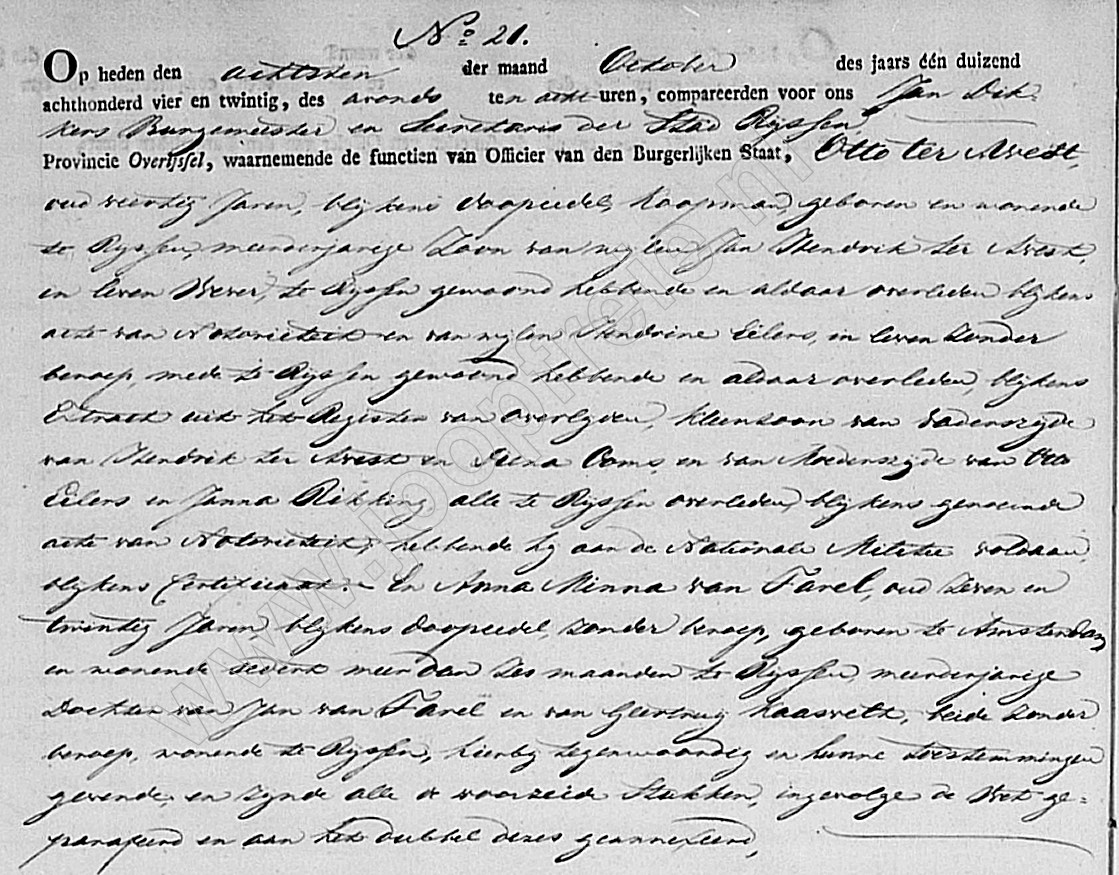 No. 21.
Op heden den achtsten der maand October des jaars één duizend
achthonderd vier en twintig, des avonds ten acht uren, compareerden voor ons Jan Dik-
kers Burgemeester en Secretaris der Stad Ryssen,
Provincie Overijssel, waarnemende de functien van Officier van den Burgerlijken Staat, Otto ter Avest,
oud veertig Jaren, blykens doopcedel, Koopman, geboren en wonende
te Ryssen, meerderjarige Zoon van wylen Jan Hendrik ter Avest,
in leven Wever, te Ryssen gewoond hebbende en aldaar overleden blykens
acte van Notorieteit en van wylen Hendrine Eilers, in leven zonder
beroep, mede te Ryssen gewoond hebbende en aldaar overleden, blykens
Extract uit het Register van Overlyden, Kleinzoon van Vaderszyde
van Hendrik ter Avest en Coms, en van Moederszyde van Otto
Eilers en Janna Rikkling, alle te Ryssen overleden, blykens genoemde
acte van Notorieteit; hebbende hy aan de Nationale Militie voldaan,
blykens Certificaat. - En Anna Minna van Tarel, oud zeven en
twintig Jaren, blykens doopcedel, zonder beroep, geboren te Amsterdam
en wonende sedert meer dan zes maanden te Ryssen, meerderjarige
Dochter van Jan van Tarel en van Geertruy Kaasvelt, beide zonder
beroep, wonende te Ryssen, hierby tegenwoordig en hunne toestemmingen
gevende, en zynde alle de voorzeide Stukken, ingevolge de Wet ge=
parafeerd en aan het dubbel dezes geannexeerd,
www.joopfrei.nl